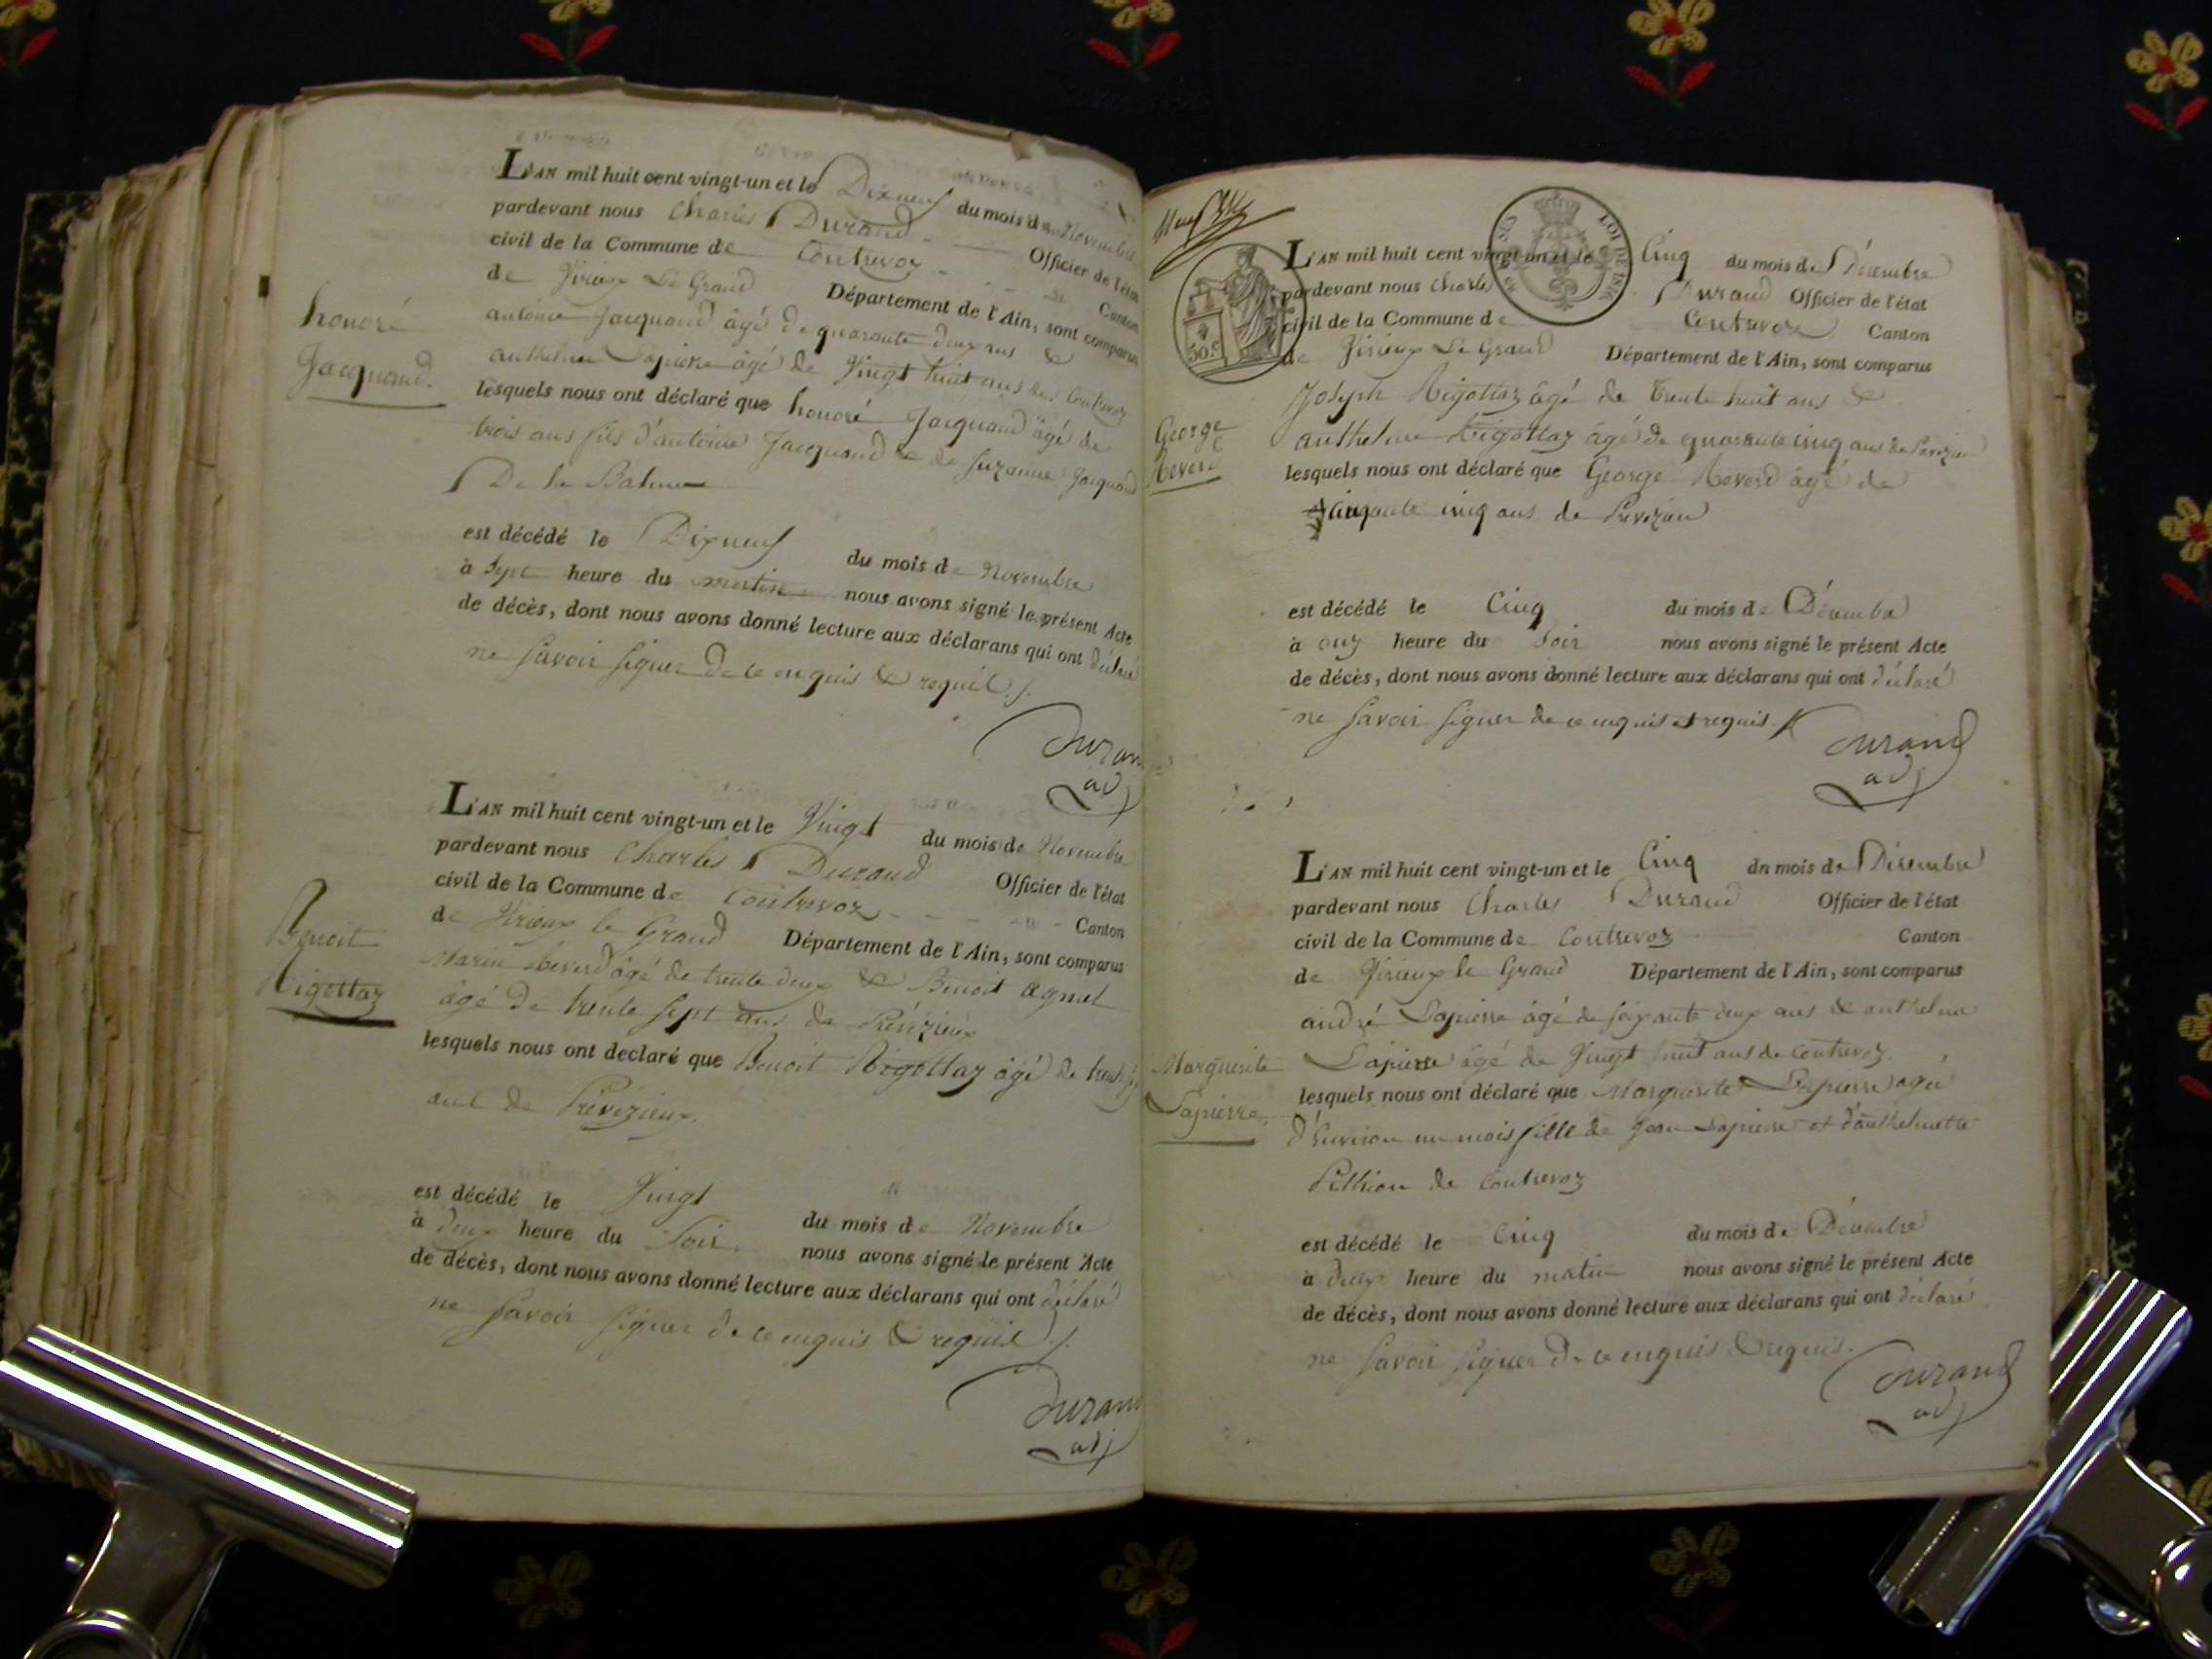 L'AN mil huit cent vingt-un et le Dixneuf du mois de Novembre
pardevant nous Charles Durand Officier de l'état
civil de la Commune de Contrevoz Canton
de Virieux Le Grand Département de l'Ain, sont comparus
antoine Jacquand âgé de quarante deux ans &
anthelme Lapierre âgé de Vingt huit ans de Contrevoz
lesquels nous ont déclaré que honoré Jacquand âgé de
trois ans fils d'antoine Jacquand & de Suzanne Jacquand
De la Balme
honoré
Jacquand.
est décédé le Dixneuf du mois de Novembre
à Sept heure du matin nous avons signé le présent Acte
de décès, dont nous avons donné lecture aux déclarans qui ont déclaré
ne Savoir Signer de ce enquis & requis ./.
Durand
adj
L'AN mil huit cent vingt-un et le Vingt du mois de Novembre
pardevant nous Charles Durand Officier de l'état
civil de la Commune de Contrevoz Canton
de Virieux le Grand Département de l'Ain, sont comparus
Marin Reverd âgé de trente deux & Benoit agnel
âgé de trente sept ans de Prévézieux
lesquels nous ont declaré que Benoit Rigottaz âgé de
ans de Prévézieux.
Benoit
Rigottaz
est décédé le Vingt du mois de Novembre
à deux heure du Soir nous avons signé le présent Acte
de décès, dont nous avons donné lecture aux déclarans qui ont déclaré
ne Savoir Signer de ce enquis & requis ./.
Durand
adj
50.c
LOI DE 1816
L'AN mil huit cent vingt-un et le Cinq du mois de Décembre
pardevant nous Charles Durand Officier de l'état
civil de la Commune de Contrevoz Canton
de Virieux Le Grand Département de l'Ain, sont comparus
Joseph Rigottaz âgé de trente huit ans &
anthelme Rigottaz âgé de quarante cinq ans de
lesquels nous ont déclaré que George Reverd âgé de
Cinquante cinq ans de
George
Reverd
est décédé le Cinq du mois de Décembre
à onze heure du Soir nous avons signé le présent Acte
de décès, dont nous avons donné lecture aux déclarans qui ont déclaré
ne Savoir Signer de ce enquis et requis
Durand
adj
L'AN mil huit cent vingt-un et le Cinq du mois de Décembre
pardevant nous Charles Durand Officier de l'état
civil de la Commune de Contrevoz Canton
de Virieux le Grand Département de l'Ain, sont comparus
andré Lapierre âgé de soixante deux ans & anthelme
Lapierre âgé de Vingt huit ans de Contrevoz.
lesquels nous ont déclaré que Marguerite Lapierre agée
d'Environ un mois fille de Jean Lapierre et d'anthelmette
Péthion de Contrevoz
Marguerite
Lapierre
est décédé le Cinq du mois de Décembre
à deux heure du matin nous avons signé le présent Acte
de décès, dont nous avons donné lecture aux déclarans qui ont déclaré
ne Savoir Signer de ce enquis & requis.
Durand
adj